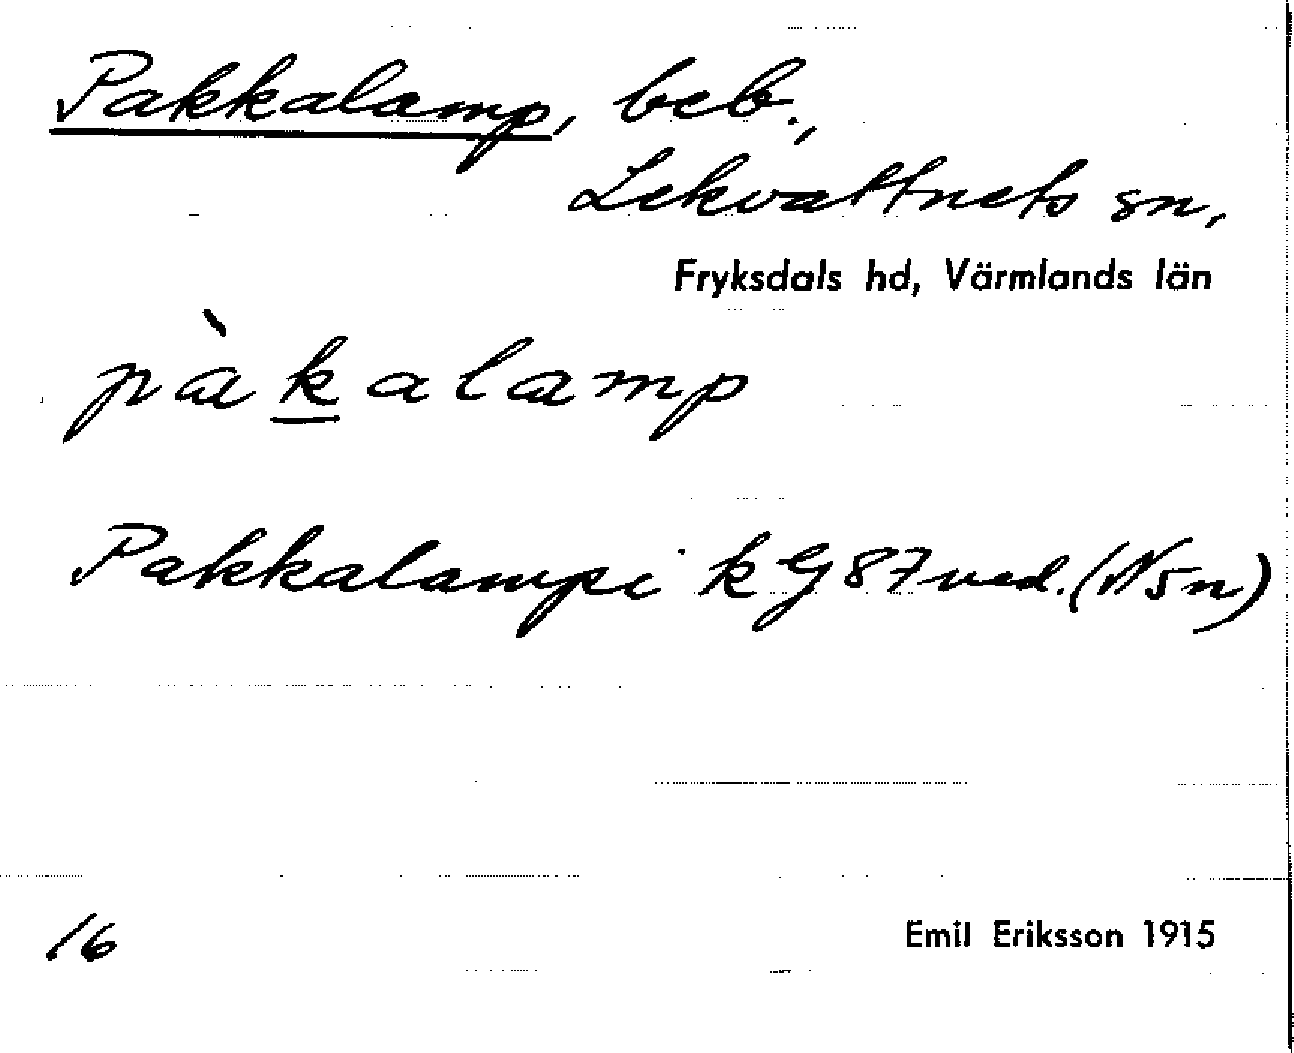 Pakkalamp, beb.,
Lekvattnets sn,
Fryksdals hd, Värmlands län
pàkalamp
Pakkalampi k G 87 ned. (N5n)
16
Emil Eriksson 1915